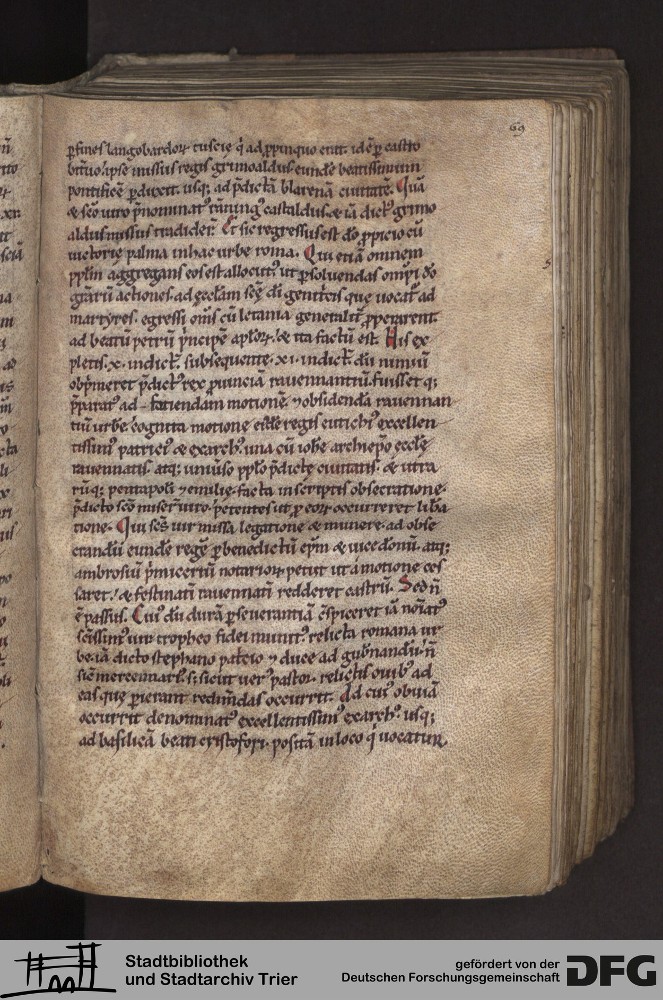 69
ꝑ fines langobardoꝝ tuscię q̇ ad ꝓpinquo erat. idē ꝑ castro
pontificē ꝑduxit. usq; ad p̄dictā bleranā ciuitatē. Quā
aldus missus tradiderꝰ. Et sic regressus est dō ꝓpicio cū
uictorię palma in hac urbe roma. Qui etiā omnem
pplm̄ aggregans eos est allocutꝰ. ut ꝑsoluendas omp̄i dō
grārū actiones. ad ęcclam scę̄ dī genitricis quę uocatꝰ ad
martyres. egressi om̄s cū letania generalitꝰ ꝓperarent.
ad beatū petrū p̄ncipē aplōꝝ. & ita factū est. His ex
pletis. x. indict. subsequente. xi. indict. dū nimiū
obp̄meret p̄dictꝰ rex ꝓuinciā rauennantiū. fuisset q;
p̄paratꝰ ad faciendam motionē. ⁊ obsidendā rauennan
tiū urbē. cognita motione eiꝰdē regis eutichiꝰ excellen
tissimꝰ patriciꝰ & exarchꝰ. una cū iohē archiep̄o ecclę
rauennatis. atq; uniuso pplo p̄dictę ciuitatis. & utra
rūq; pentapoli ⁊ emilię. facta in scriptis obsecratione.
p̄dicto scō miserꝰ uiro. petentes ut ꝓ eoꝝ occurreret liba
tione. Qui scs̄ uir missa legatione & munere. ad obse
crandū eundē regē ꝑ benedictū ep̄m & uice donū. atq;
ambrosiū p̄miceriū notarioꝝ. petiit ut a motione ces
saret. & festinatī rauennatī redderet castrū. Sed n̄
ē passus. Cuiꝰ dū durā ꝑseuerantiā c̄spiceret iā noīatꝰ
sc̄issimꝰ uir tropheo fidei munitꝰ. relicta romana ur
be. iā dicto stephano pat̄cio ⁊ duce ad gub̄nandū. n̄
sic̄ mercennariꝰ. s; sicut uerꝰ pastor. relictis ouibꝰ ad
eas quę ꝑierant redim̄das occurrit. Ad cuiꝰ obuiā
occurrit denominatꝰ excellentissimꝰ exarchꝰ. usq;
ad basilicā beati cristofori. positā in loco q̇ uocatur
Stadtbibliothek
und Stadtarchiv Trier
gefördert von der
Deutschen Forschungsgemeinschaft
DFG